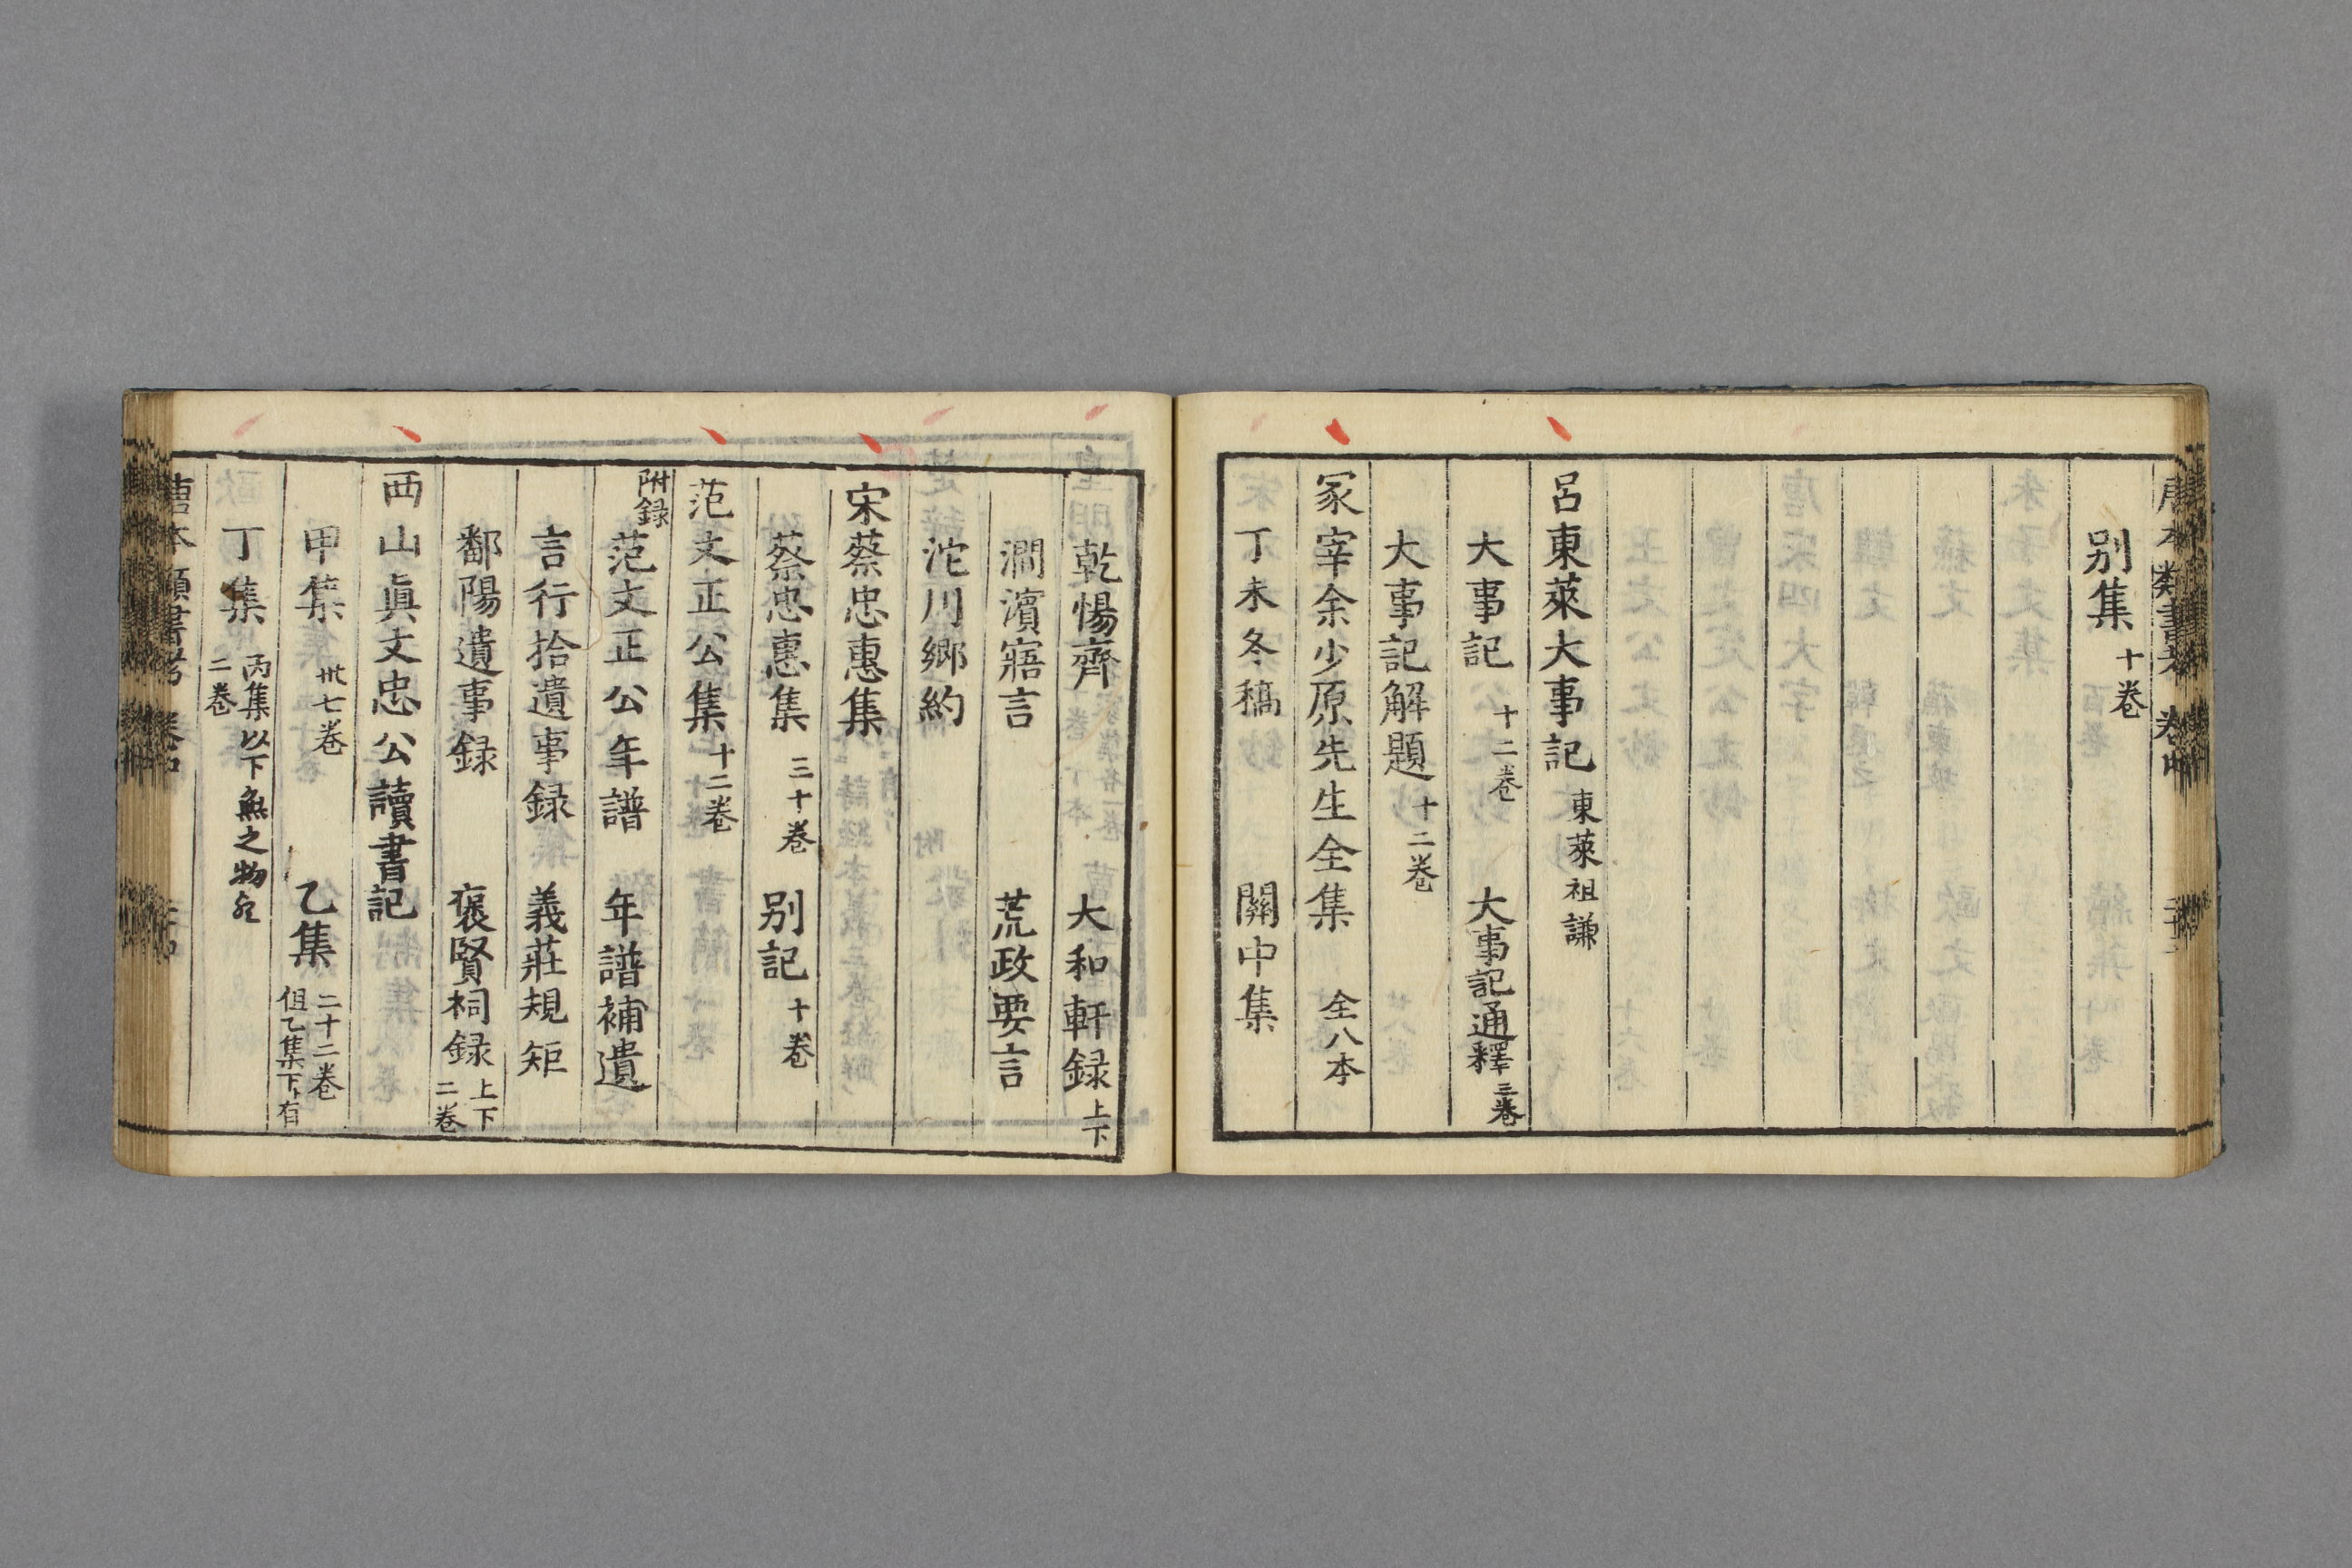 別集 十卷
呂東萊大事記 東萊祖謙
大事記 十二卷 大事記通釋 三卷
大事記解題 十二卷
冢宰余少原先生全集 全八本
丁未冬稿 關中集
乾惕齊 大和軒録 上下
澗濱寤言 荒政要言
沱川鄉約
宋蔡忠惠集
蔡忠惠集 三十卷 別記 十卷
范文正公集 十二卷
附録 范文正公年譜 年譜補遺
言行拾遺事録 義莊規矩
鄱陽遺事録 褒賢祠録 上下二卷
西山眞文忠公讀書記
甲集 卅七卷 乙集 二十二卷 但乙集下ト有
丁集 丙集以下無之物也 二卷
唐本類書考 卷中